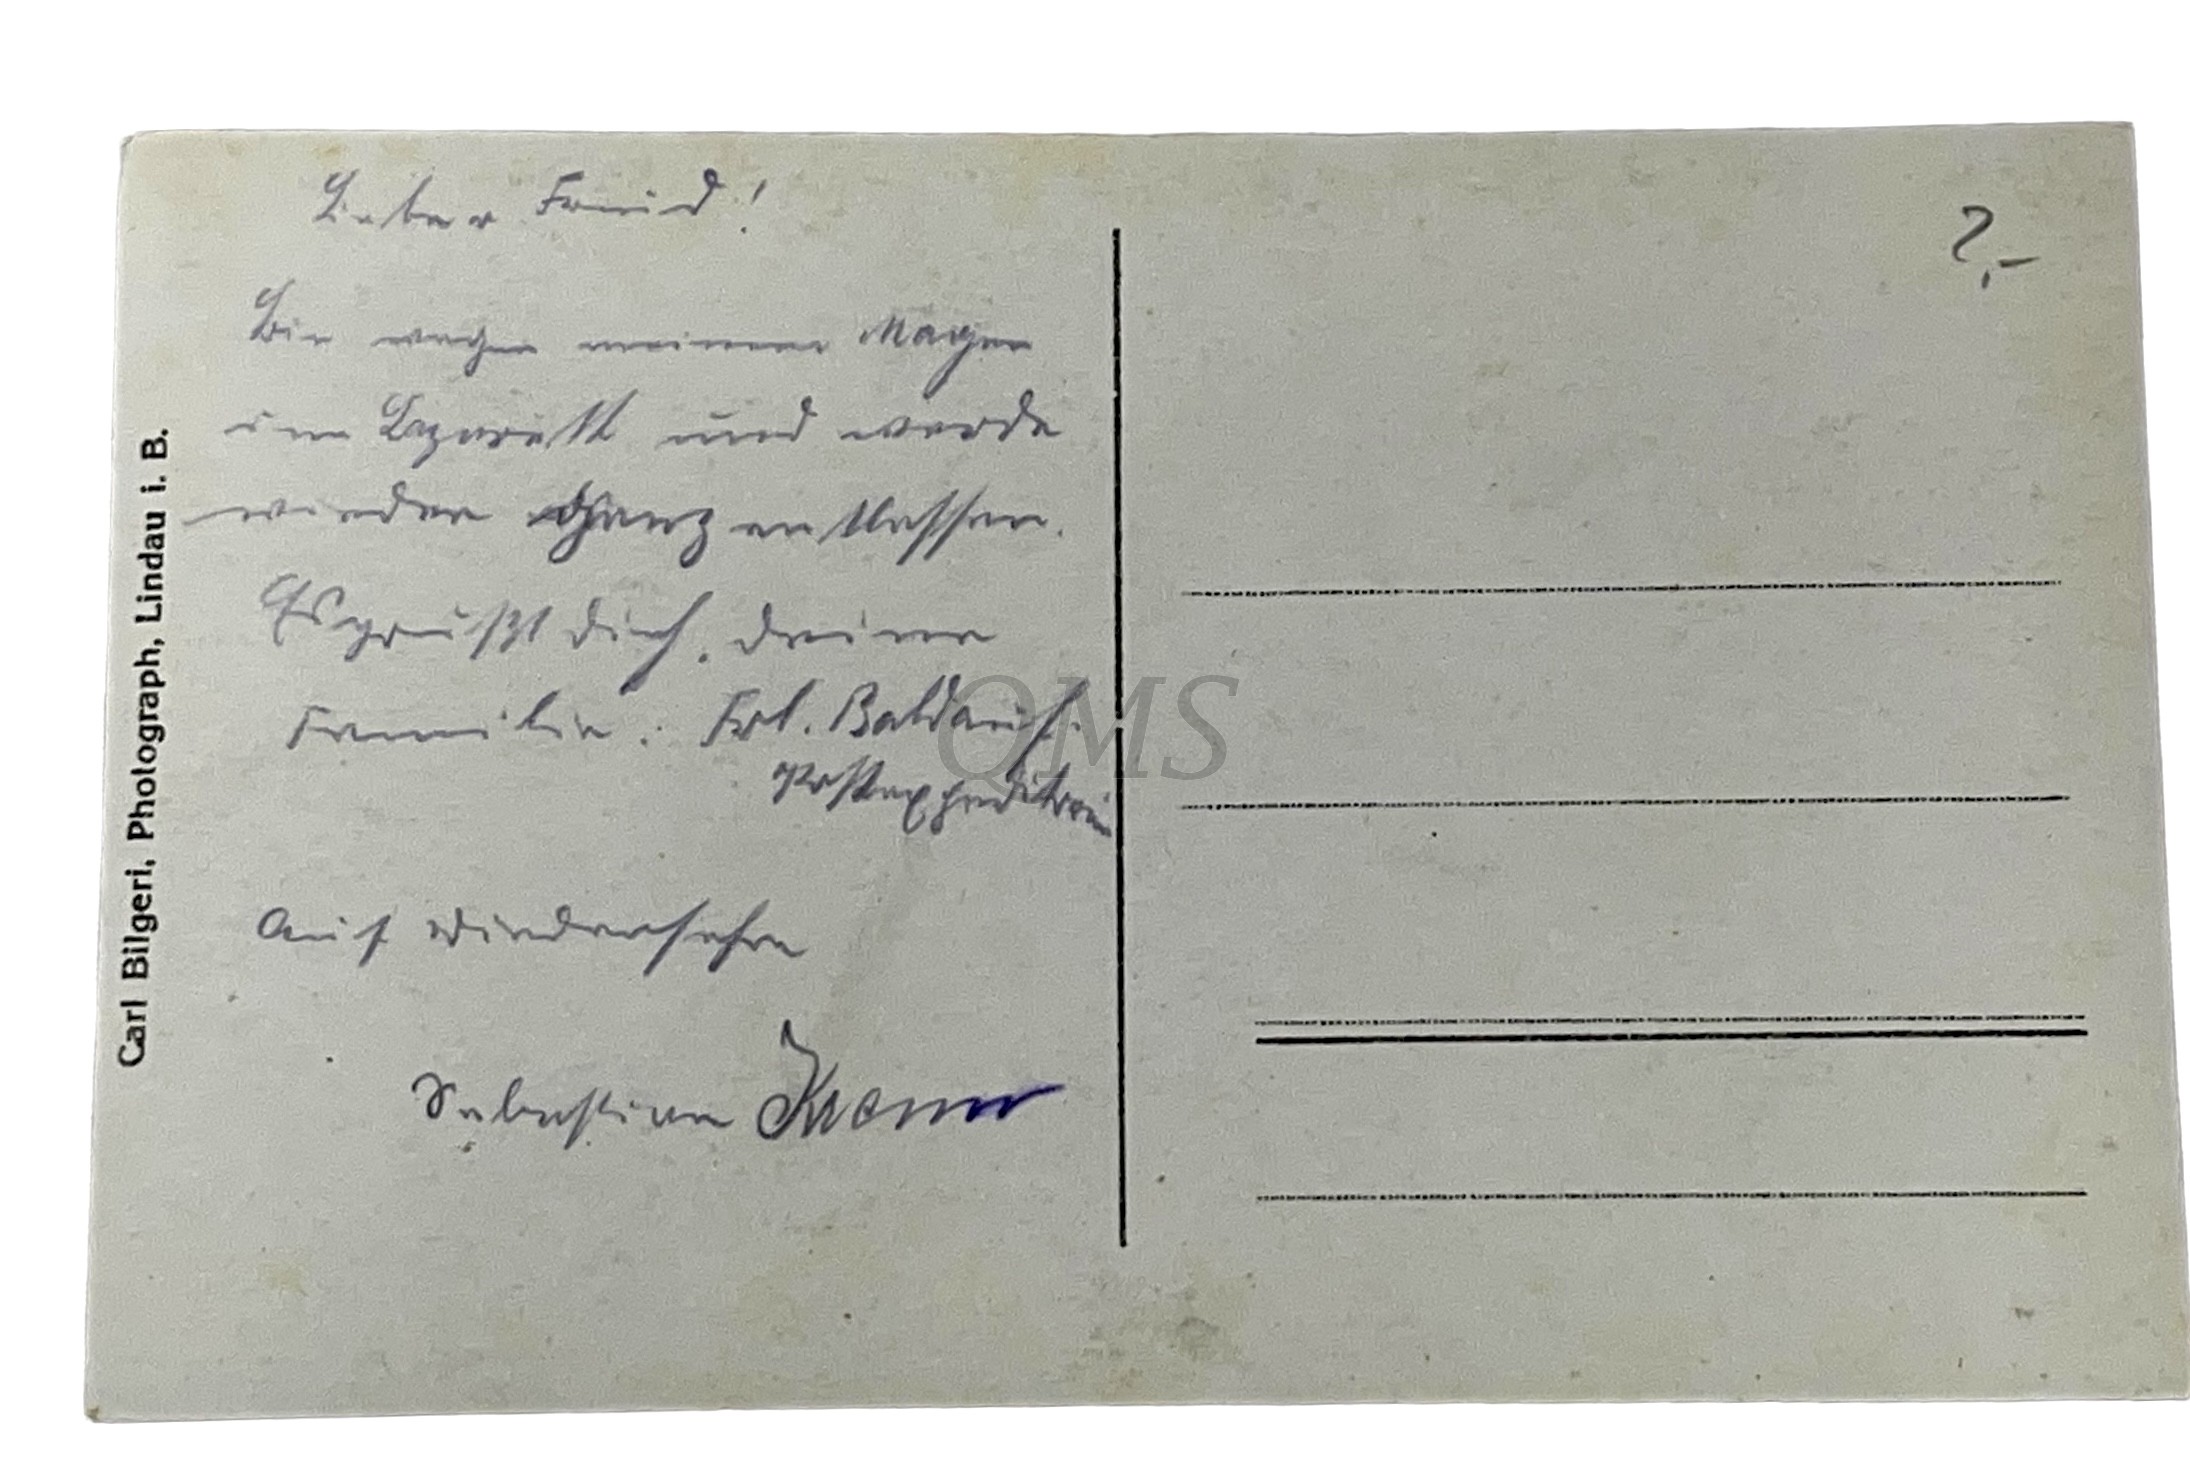 Lieber Freund!
Bin wegen meinem Magen
im Lazarett und werde
wieder Ganz entlassen.
Es grüßt dich, deine
Familie: Frl. Baldauf.
Postexpeditorin
Auf Wiedersehn
Sebastian
Carl Bilgeri, Photograph, Lindau i. B.
2,-
QMS